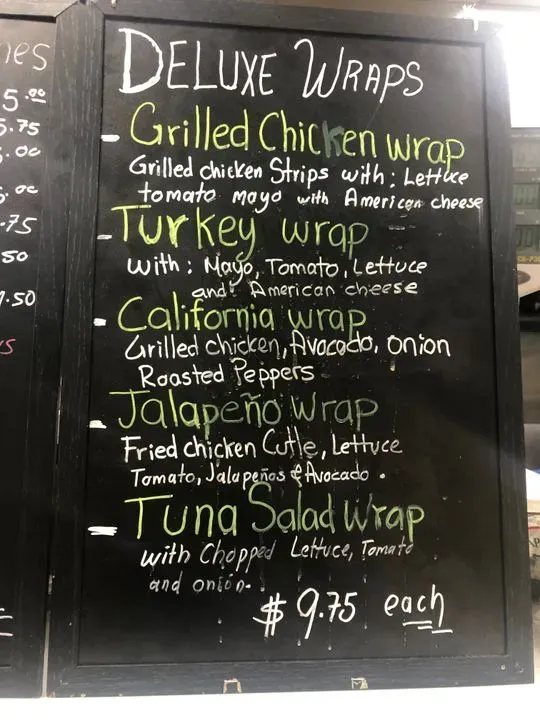 nes
5.00
5.75
5.00
5.00
.75
50
7.50
DELUXE WRAPS
- Grilled Chicken wrap
Grilled chicken Strips with: Lettuce
tomato mayo with American cheese
- Turkey wrap
with: Mayo, Tomato, Lettuce
and: American cheese
- California wrap
Grilled chicken, Avocado, onion
Roasted Peppers
- Jalapeño wrap
Fried chicken Cutle, Lettuce
Tomato, Jalapeños & Avocado.
- Tuna Salad Wrap
with Chopped Lettuce, Tomato
and onion.
$9.75 each